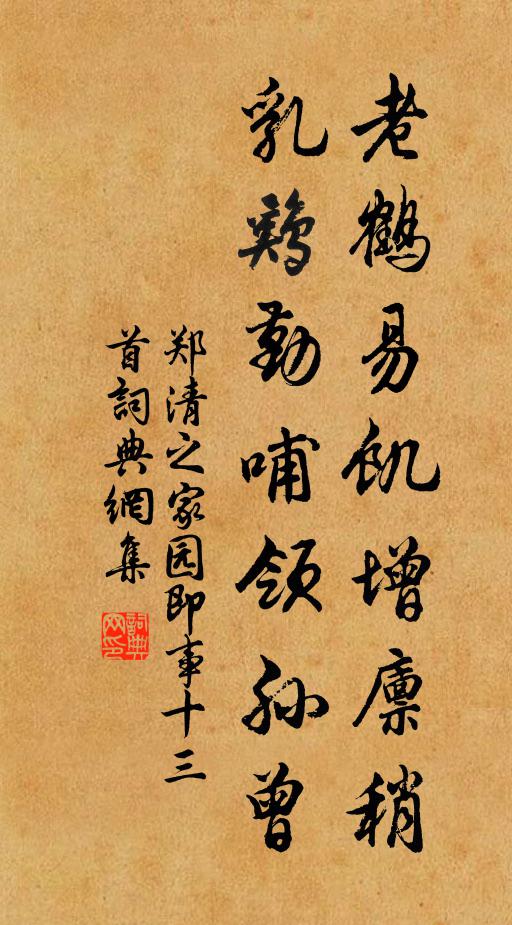 老鹤易饥增廪稍
乳鷄勤哺领孙曾
郑清之家园即事十三
首詞典網集
詞典網印